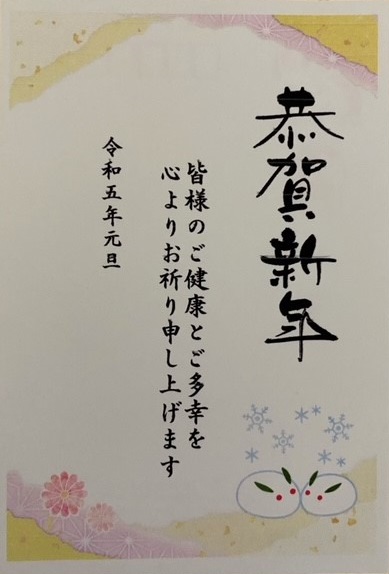 恭賀新年
皆様のご健康とご多幸を
心よりお祈り申し上げます
令和五年元旦